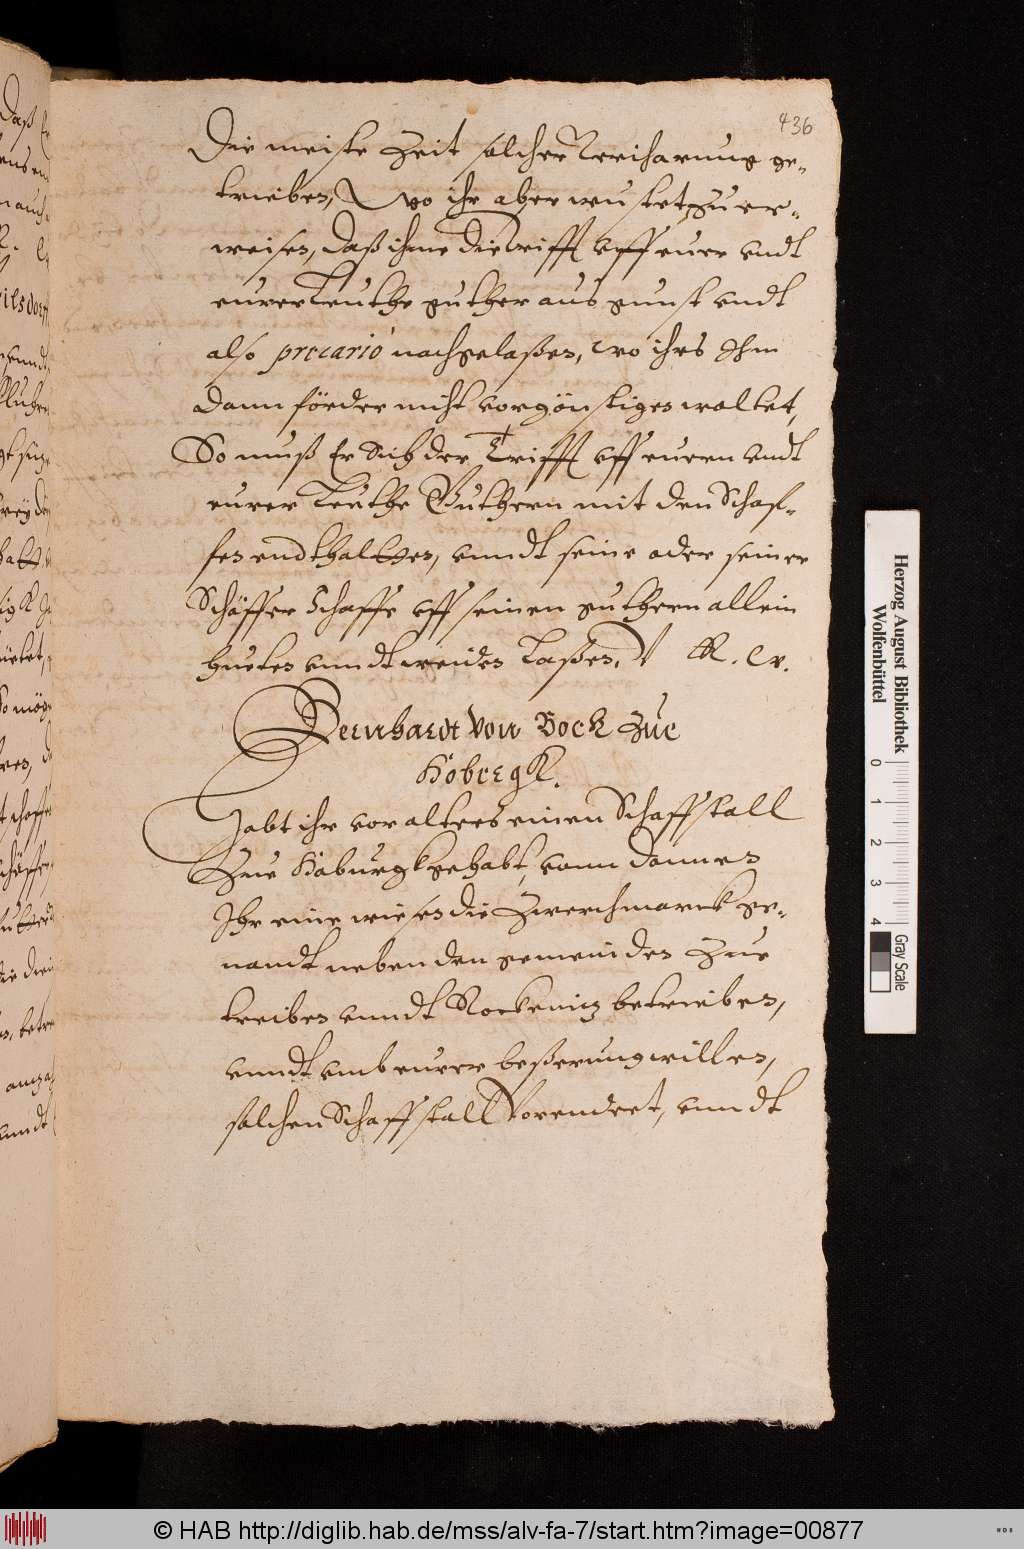 436
Die meiste Zeit solcher Verjharung ge-
trieben, Wo ihr aber wustet zu er-
weisen, daß ihme die Trifft uff euer undt
eurer Leuthe guther aus gunst undt
also precario nachgelaßen, wo ihrs Ihm
dann förder nicht vorgönstigen woltet,
So muß Er Sich der Trifft uff euern undt
eurer Leuthe Guthern mit den Schaf-
fen endthalten, unndt seine oder seiner
Schäffer Schaffe uff seinen guthern allein
hueten unndt weiden Laßen, V R. W.
Bernhardt Von Bock Zue
Hobregk.
Habt ihr vor alters einen Schaffstall
Zue Hoburgk gehabt, vonn dannen
Ihr eine wiesen die Zwerchmarck ge-
nandt neben den gemeinden Zue
treiben unndt betrieben,
unndt umb eurer beßerung willen,
solchen Schaffstall Vorendert, unndt
Herzog August Bibliothek
Wolfenbüttel
0 1 2 3 4
Gray Scale
© HAB http://diglib.hab.de/mss/alv-fa-7/start.htm?image=00877